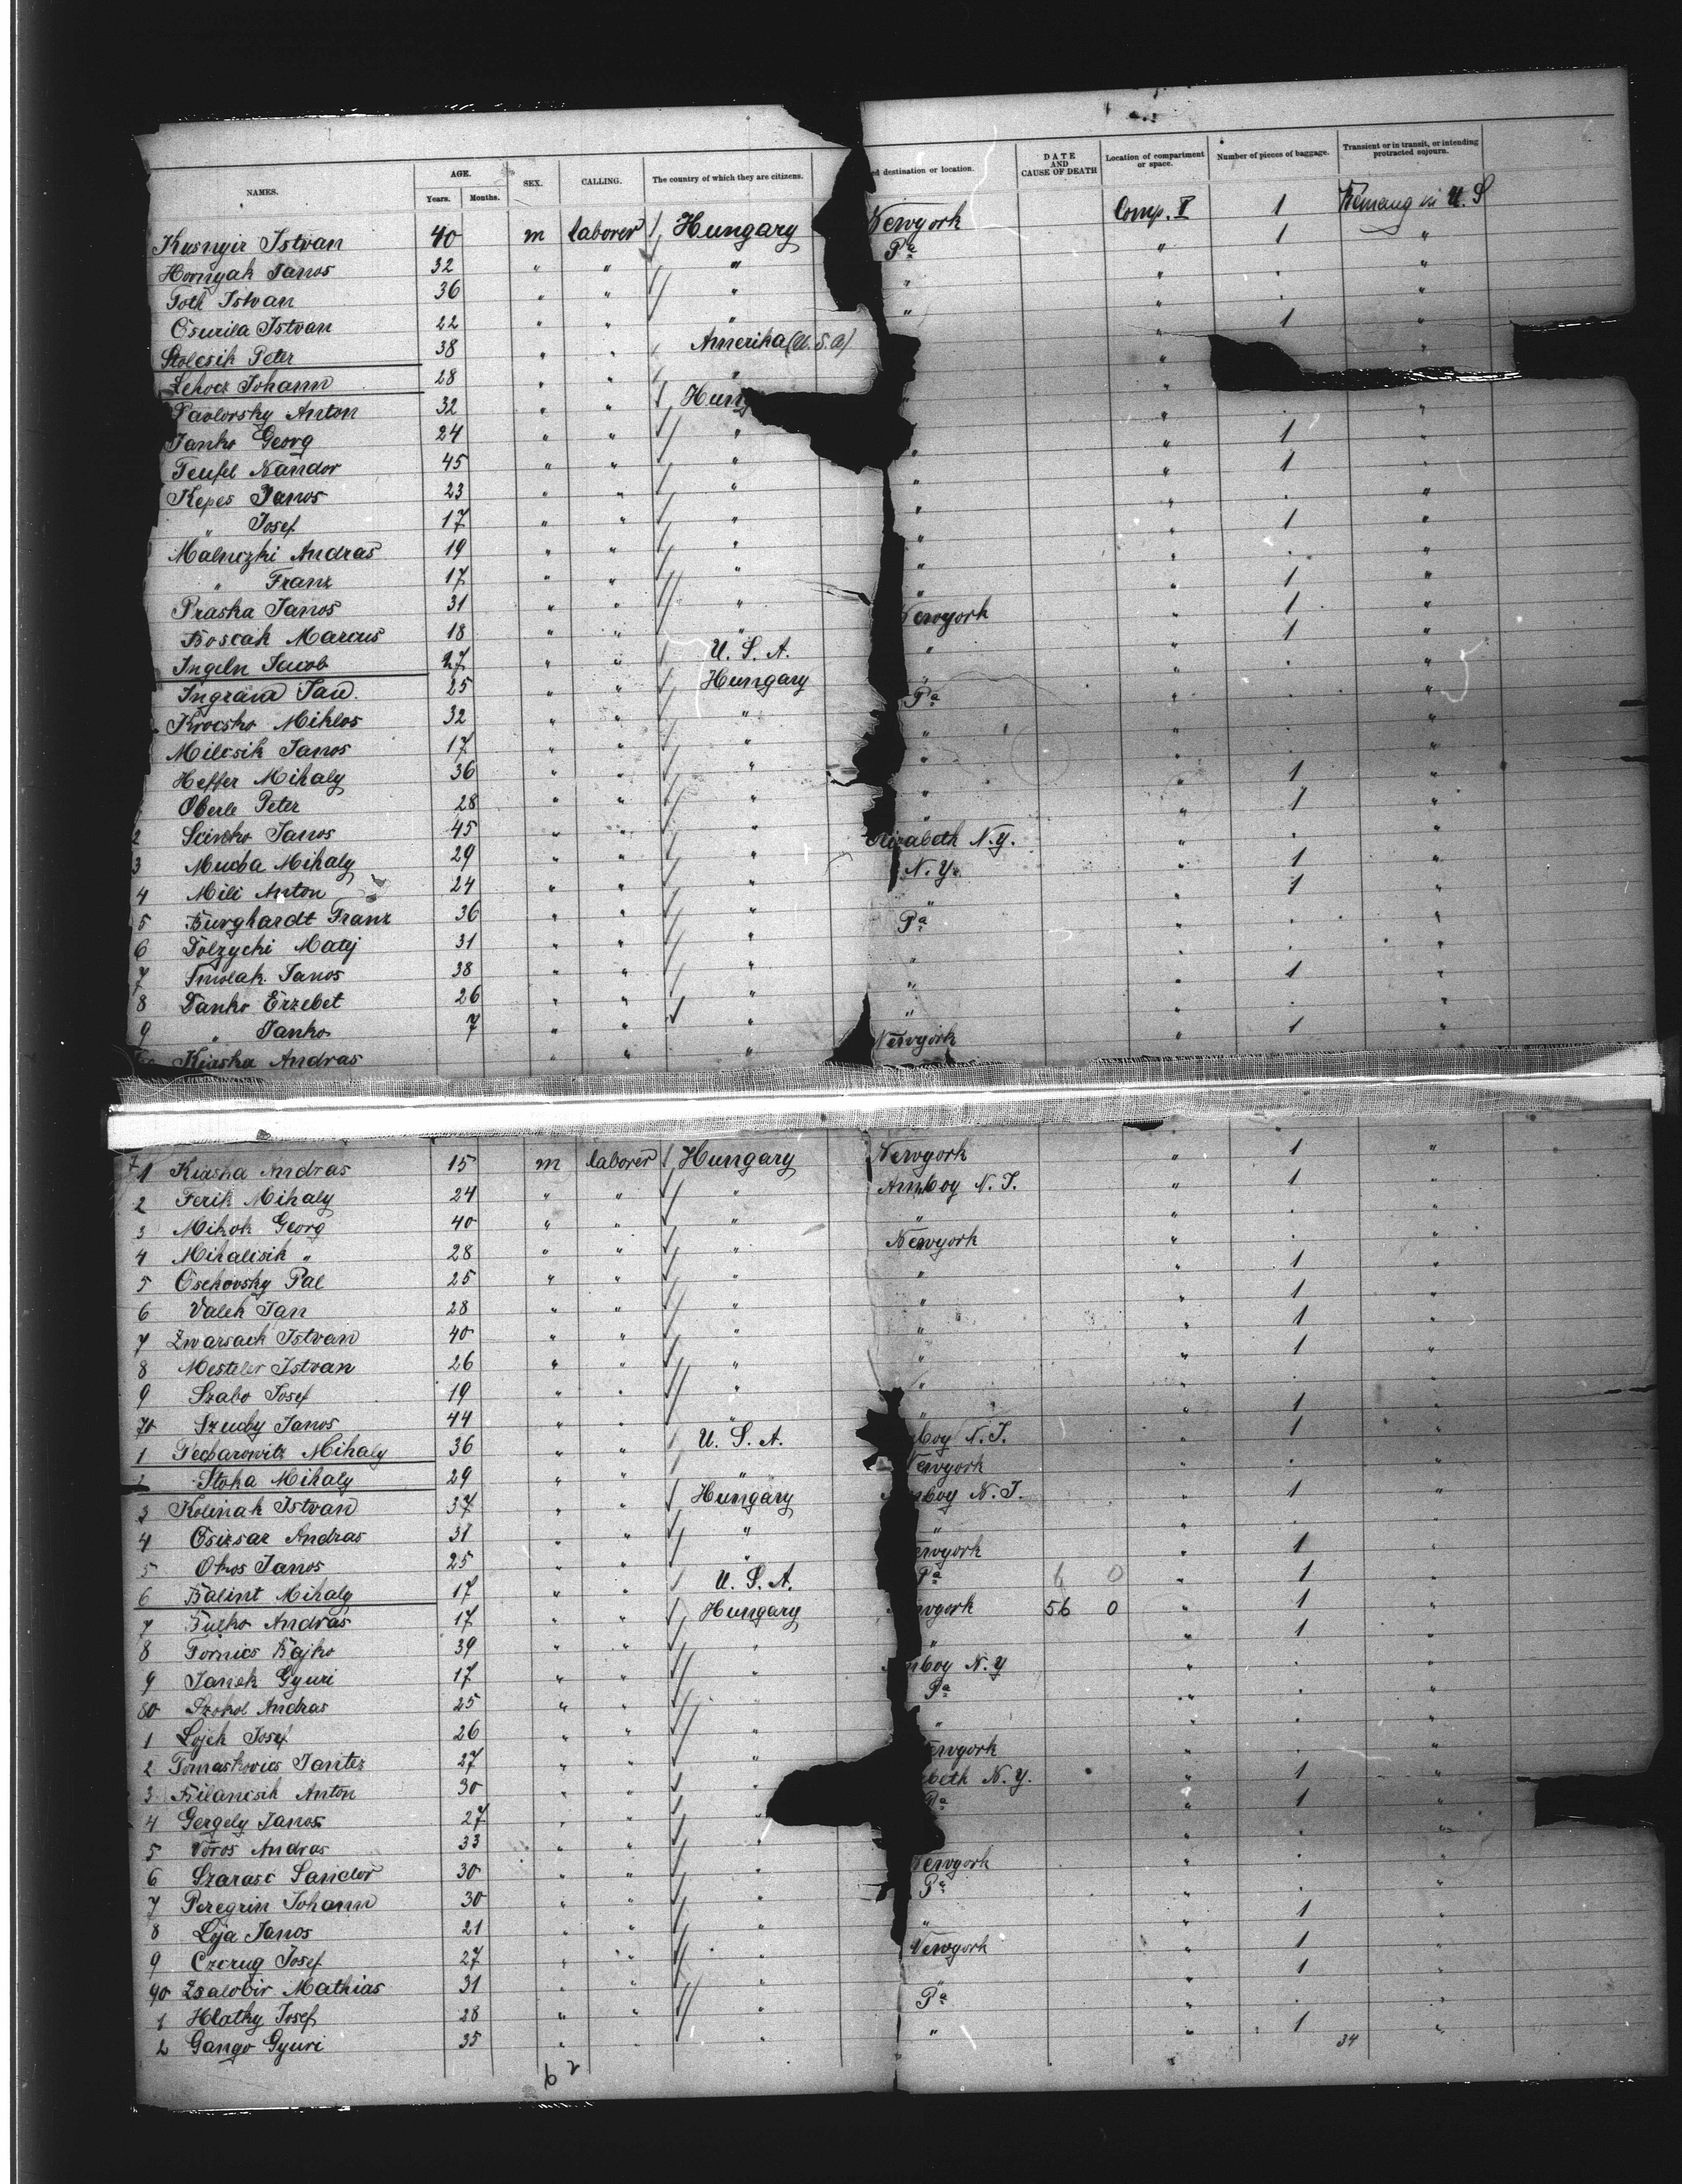 NAMES. AGE. Years. Months. SEX. CALLING. The country of which they are citizens. ed destination or location. DATE AND CAUSE OF DEATH Location of compartment or space. Number of pieces of baggage. Transient or in transit, or intending protracted sojourn.
Kusnyir Istvan 40 m laborer Hungary Newyork Comp. V 1 U. S
Hornyak Janos 32 " " " Pa " 1 "
Toth Istvan 36 " " " " " "
Csurila Istvan 22 " " " " " "
Stolcsik Peter 38 " " Amerika (U.S.A) " 1 "
Lehocz Johann 28 " " " "
Pavlovsky Anton 32 " " Hung " "
Janko Georg 24 " " " " "
Teufel Nandor 45 " " " " " 1 "
Kepes Janos 23 " " " " " 1 "
" Josef 17 " " " " " "
Malniczki Andras 19 " " " " " 1 "
" Franz 17 " " " " " "
Praska Janos 31 " " " " " 1 "
Boscak Marcus 18 " " " ewyork " 1 "
Ingeln Jacob 27 " " U. S. A. " " 1 "
Ingram Jan. 25 " " Hungary " " "
Krocsko Miklos 32 " " " Pa " "
Milcsik Janos 17 " " " " " "
Heffer Mihaly 36 " " " " " "
Oberle Peter 28 " " " " " 1 "
2 Scinko Janos 45 " " " " " 1 "
3 Mucha Mihaly 29 " " " Elizabeth N.Y. " "
4 Mili Anton 24 " " " N.Y. " 1 "
5 Burghardt Franz 36 " " " " " 1 "
6 Dolzycki Matij 31 " " " Pa " "
7 Smolak Janos 38 " " " " " "
8 Danko Erzebet 26 " " " " " 1 "
9 " Janko 7 " " " " " "
Kiaska Andras " " " Newyork " 1 "
1 Kiaska Andras 15 m laborer Hungary Newyork " 1 "
2 Ferik Mihaly 24 " " " Amboy N. J. " 1 "
3 Mikok Georg 40 " " " " " "
4 Mihalisik " 28 " " " Newyork " "
5 Csehovsky Pal 25 " " " " " 1 "
6 Valek Jan 28 " " " " " 1 "
7 Zwarsach Istvan 40 " " " " " 1 "
8 Mesteler Istvan 26 " " " " " 1 "
9 Szabo Josef 19 " " " " " "
70 Szuchy Janos 44 " " " " " 1 "
1 Techarowitz Mihaly 36 " " U. S. A. boy N. J. " 1 "
2 Stoka Mihaly 29 " " " ewyork " "
3 Kolinak Istvan 37 " " Hungary mboy N. J. " 1 "
4 Csizsar Andras 31 " " " " " "
5 Okos Janos 25 " " " ewyork " 1 "
6 Balint Mihaly 17 " " U. S. A. Pa 6 0 " 1 "
7 Fulko Andras 17 " " Hungary wyork 56 0 " 1 "
8 Tornics Bajko 39 " " " " " 1 "
9 Janek Gyuri 17 " " " mboy N. Y " "
80 Szokol Andras 25 " " " Pa " "
1 Lojek Josef 26 " " " " " "
2 Tomaskovics 27 " " " ewyork " "
3 Bilancsik Anton 30 " " " beth N. Y. " 1 "
4 Gergely Janos 27 " " " Pa " 1 "
5 Vöros Andras 33 " " " "
6 Szarasc Sandor 30 " " " ewyork " "
7 Peregrin Johann 30 " " " Pa " "
8 Loja Janos 21 " " " " " 1 "
9 Czerug Josef 27 " " " Newyork " 1 "
90 Zsalobir Mathias 31 " " " " " 1 "
1 Hlathy Josef 28 " " " Pa " "
2 Gango Gyuri 35 " " " " 1 "
34
62